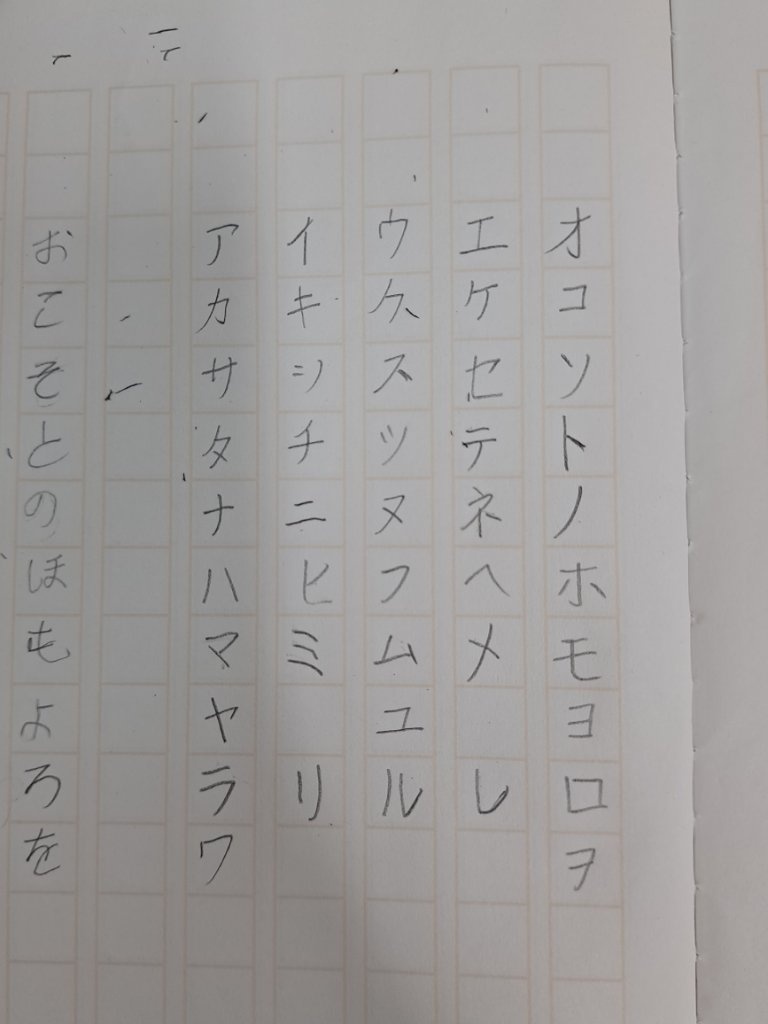 おこそとのほもよろを
アカサタナハマヤラワ
イキシチニヒミリ
ウクスツヌフムユル
エケセテネヘメレ
オコソトノホモヨロヲ